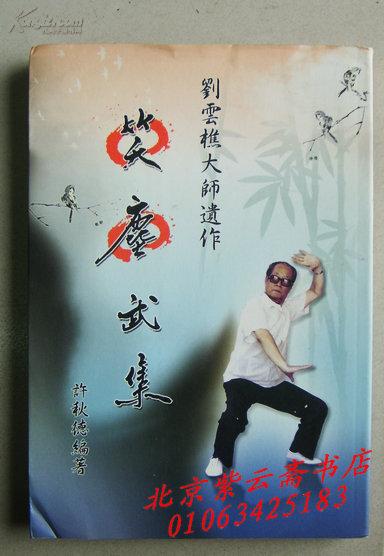 劉雲樵大師遺作
笑塵武集
許秋德編著
北京紫云斋书店
01063425183